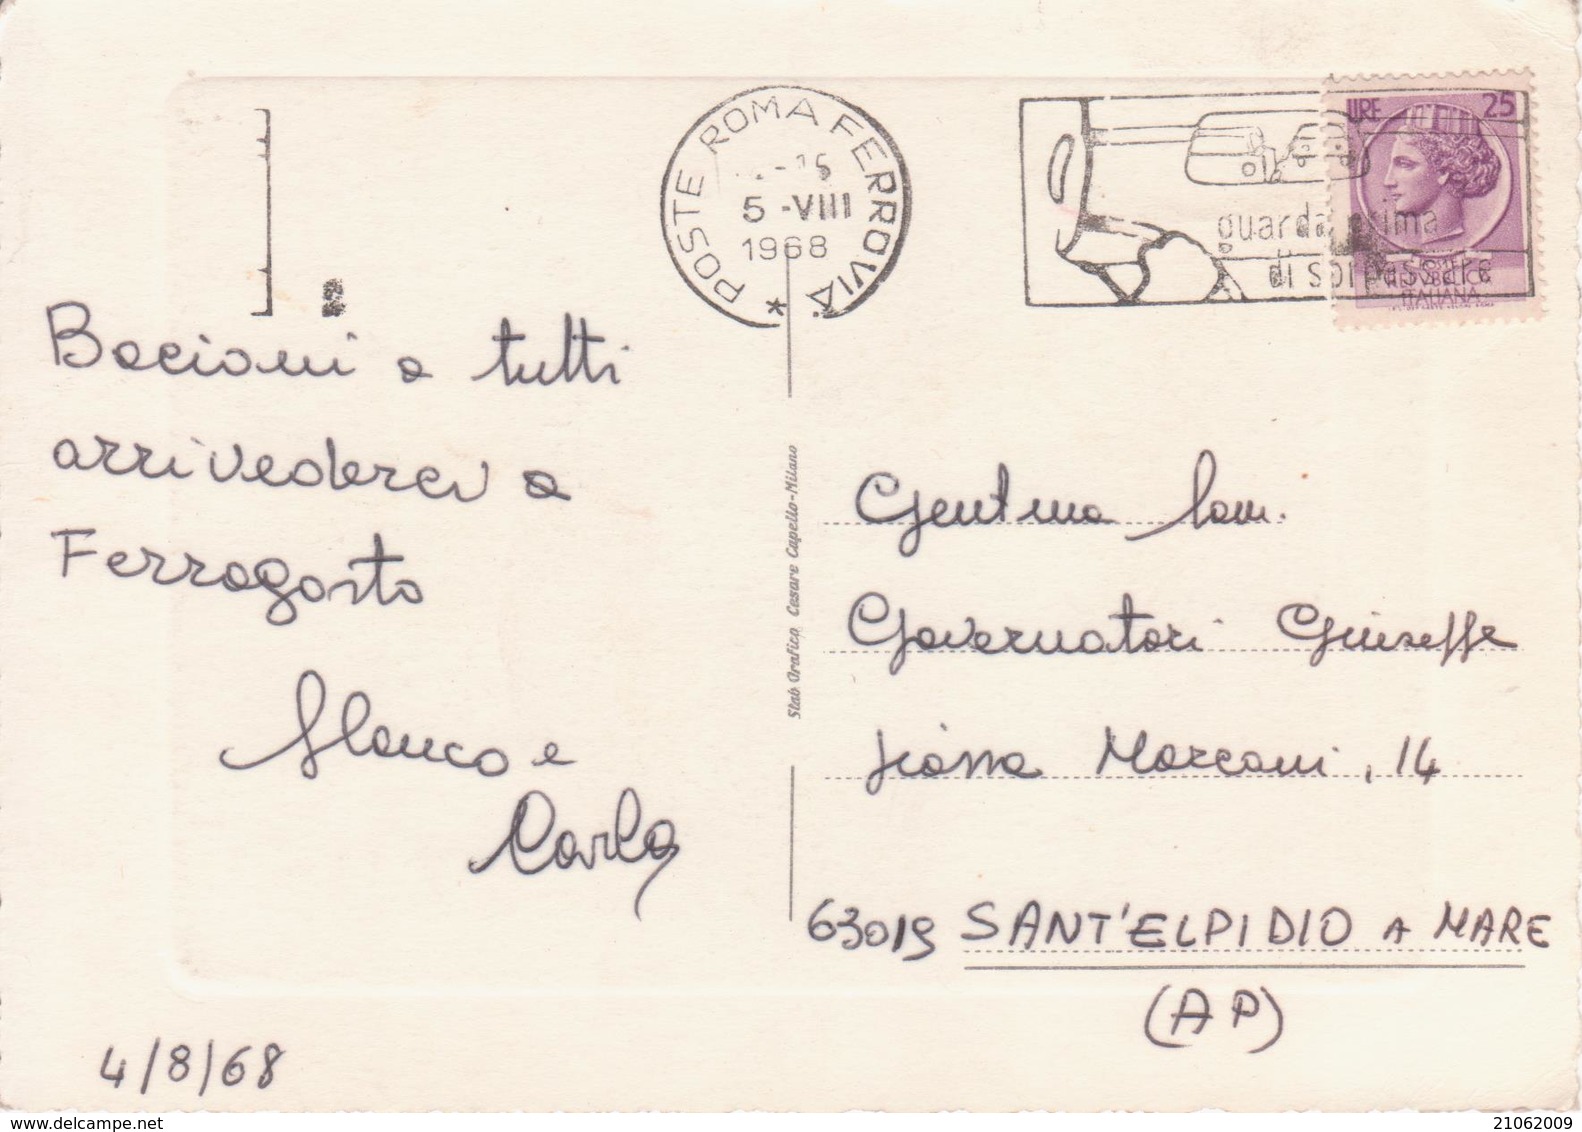 POSTE ROMA FERROVIA *
5 -VIII
1968
LIRE 25
guarda prima
di sorpassare
ITALIANA
Bacioni a tutti
arrivederci a
Ferragosto
Glauco e
Carla
4/8/68
Stab. Grafico Cesare Capello-Milano
Gent.ma Fam.
Governatori Giuseppe
Piazza Marconi, 14
63019 SANT'ELPIDIO A MARE
(AP)
delcampe.net
21062009